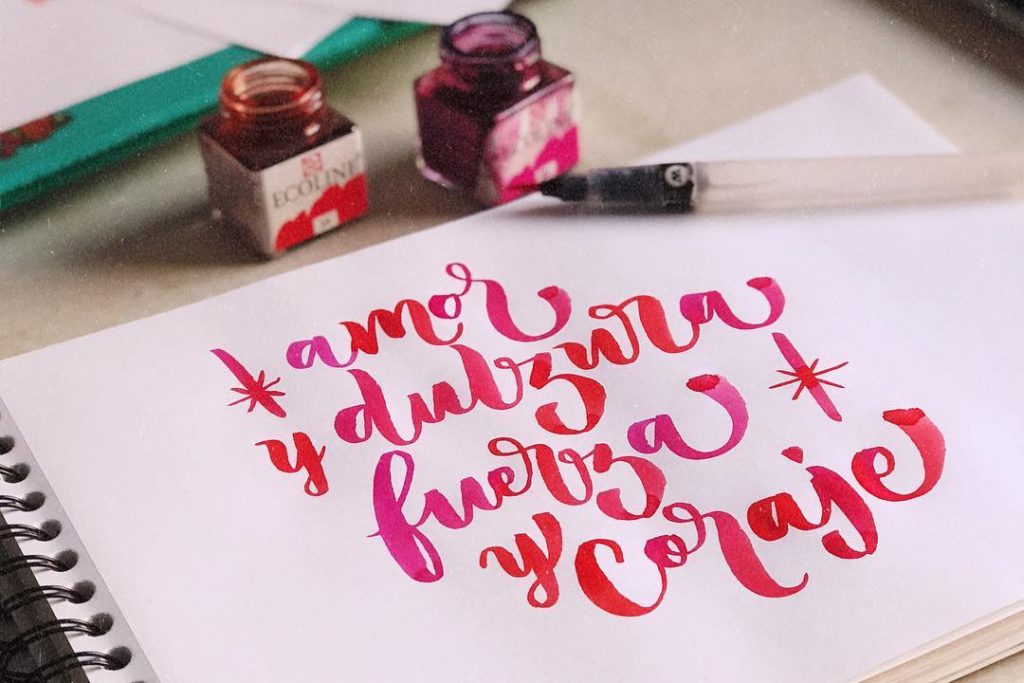 ECOLINE
ECOLINE
amor
y dulzura
fuerza
y coraje